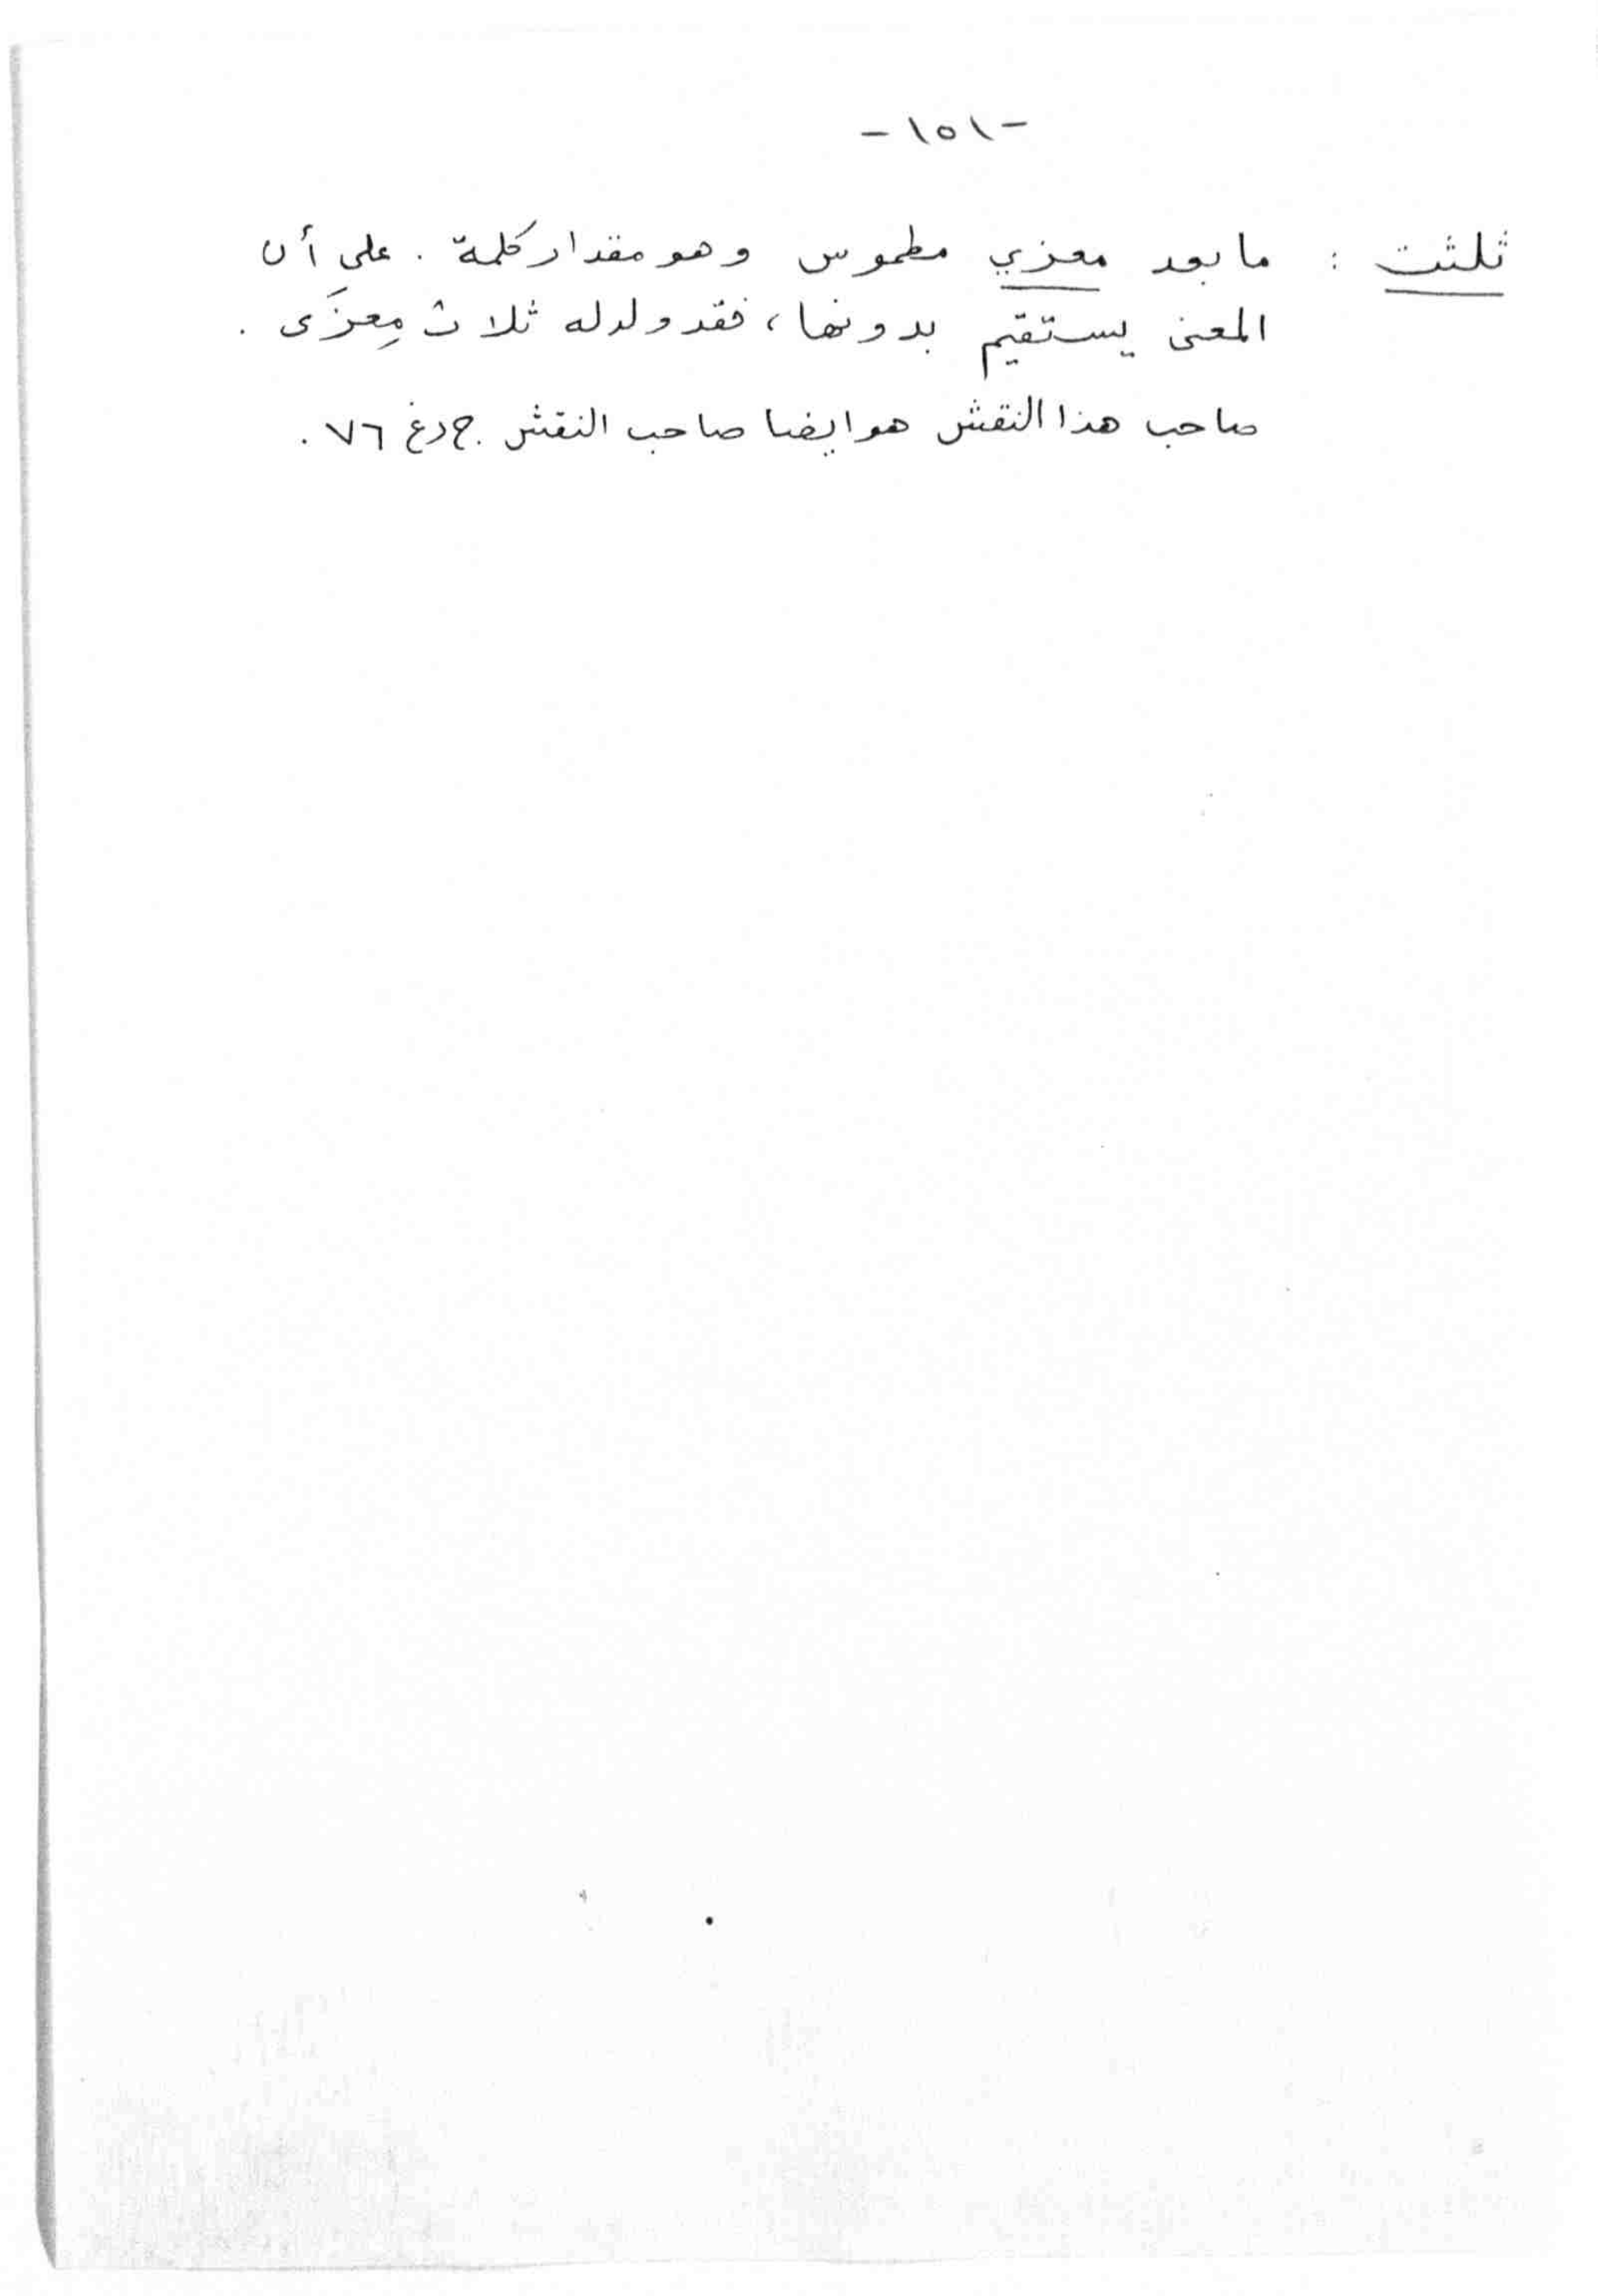 - ١٥١ -
ثلثت : ما بعد معزي مطموس وهو مقدار كلمة . على أن
المعنى يستقيم بدونها ، فقد ولد له ثلاث مِعزَى .
صاحب هذا النقش هو ايضا صاحب النقش ج دغ ٧٦ .